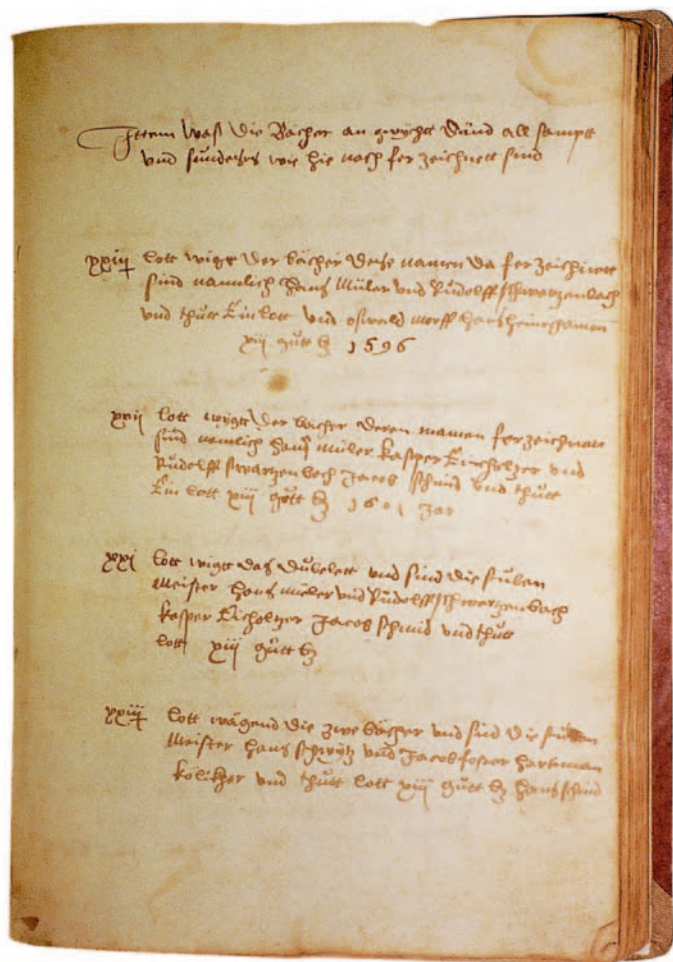 Ittem waß die Bächer an gwychtt Dünd all sampt
und sunderhrs wie hie nach fer zeichnett sind
xxiij lott wigtt der bächer deße namen da fer zeichnett
sind namlich Hanß Müler und Rudolff schwarzenbach
und thutt Ein lott und oswald morff Hans heinrich amen
xij gůtt bz 1596
xxij lott wygtt der bächer deren namen fer zeichnett
sind nemlich Hans müler Kasper Eicholzer und
Rudolff swartzenbach Jacob schmid und thutt
Ein lott xiij gůtt bz 1601 Jar
xxj lott wigtt das dubelett und sind die stuben
Meister Hans müler und Rudolff schwarzenbach
Kasper Eicholtzer Jacob schmid und thutt
lott xiij gůtt bz
lott wägend die zwe bächer und sind die stuben
Meister Hans schwytz und Jacob hartman
Köliker und thutt lott xiij gůtt bz Hans schmid